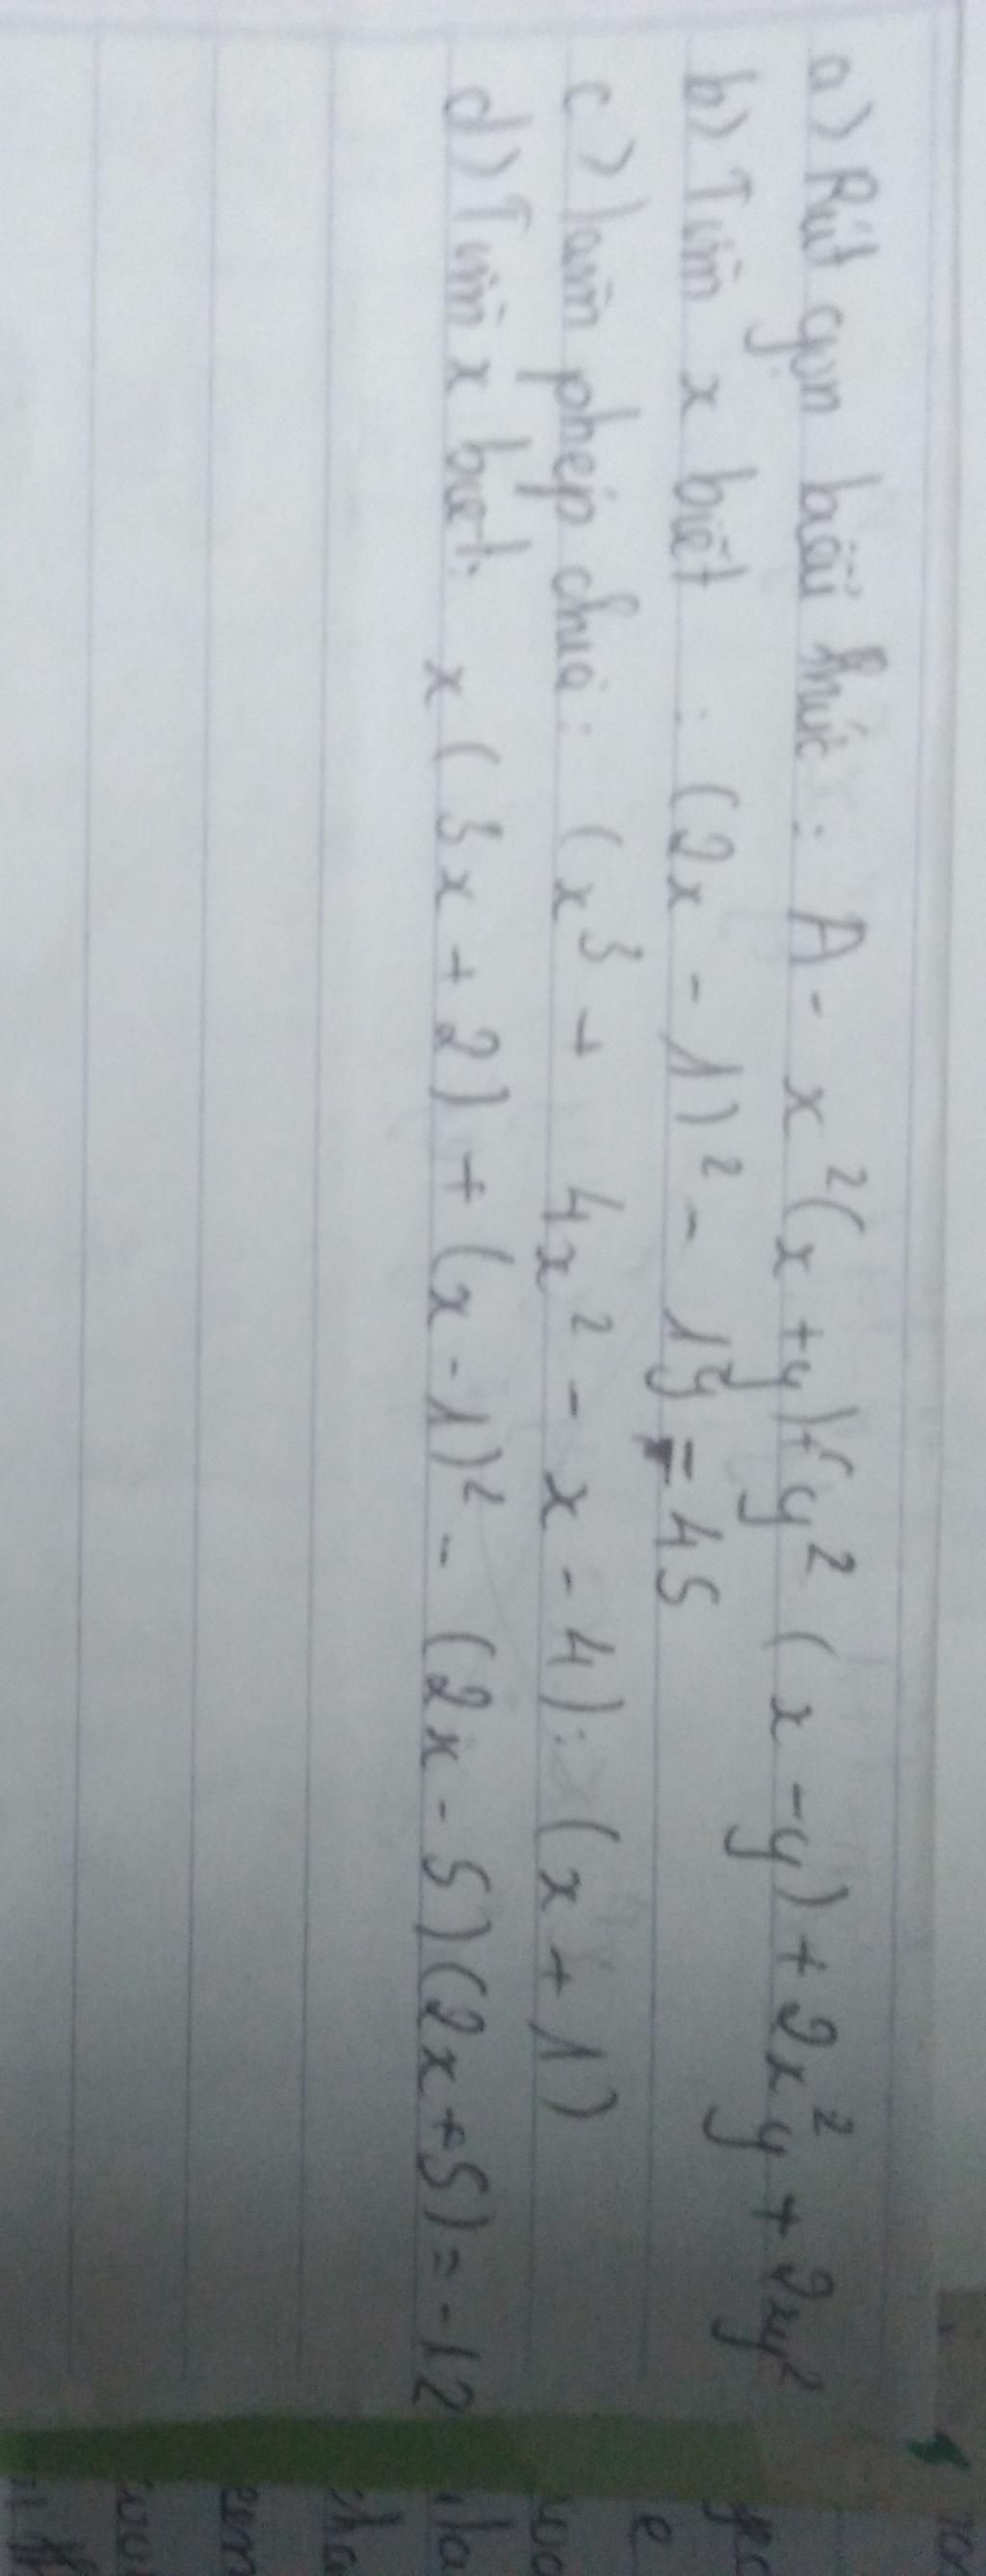 a) Rút gọn biểu thức: A = x²(x + y) + y²(x - y) + 2x²y + 2xy²
b) Tìm x biết : (2x - 1)² - 19 = 45
c) làm phép chia: (x³ + 4x² - x - 4) : (x + 1)
d) Tìm x biết: x(3x + 2) + (x - 1)² - (2x - 5)(2x + 5) = -12